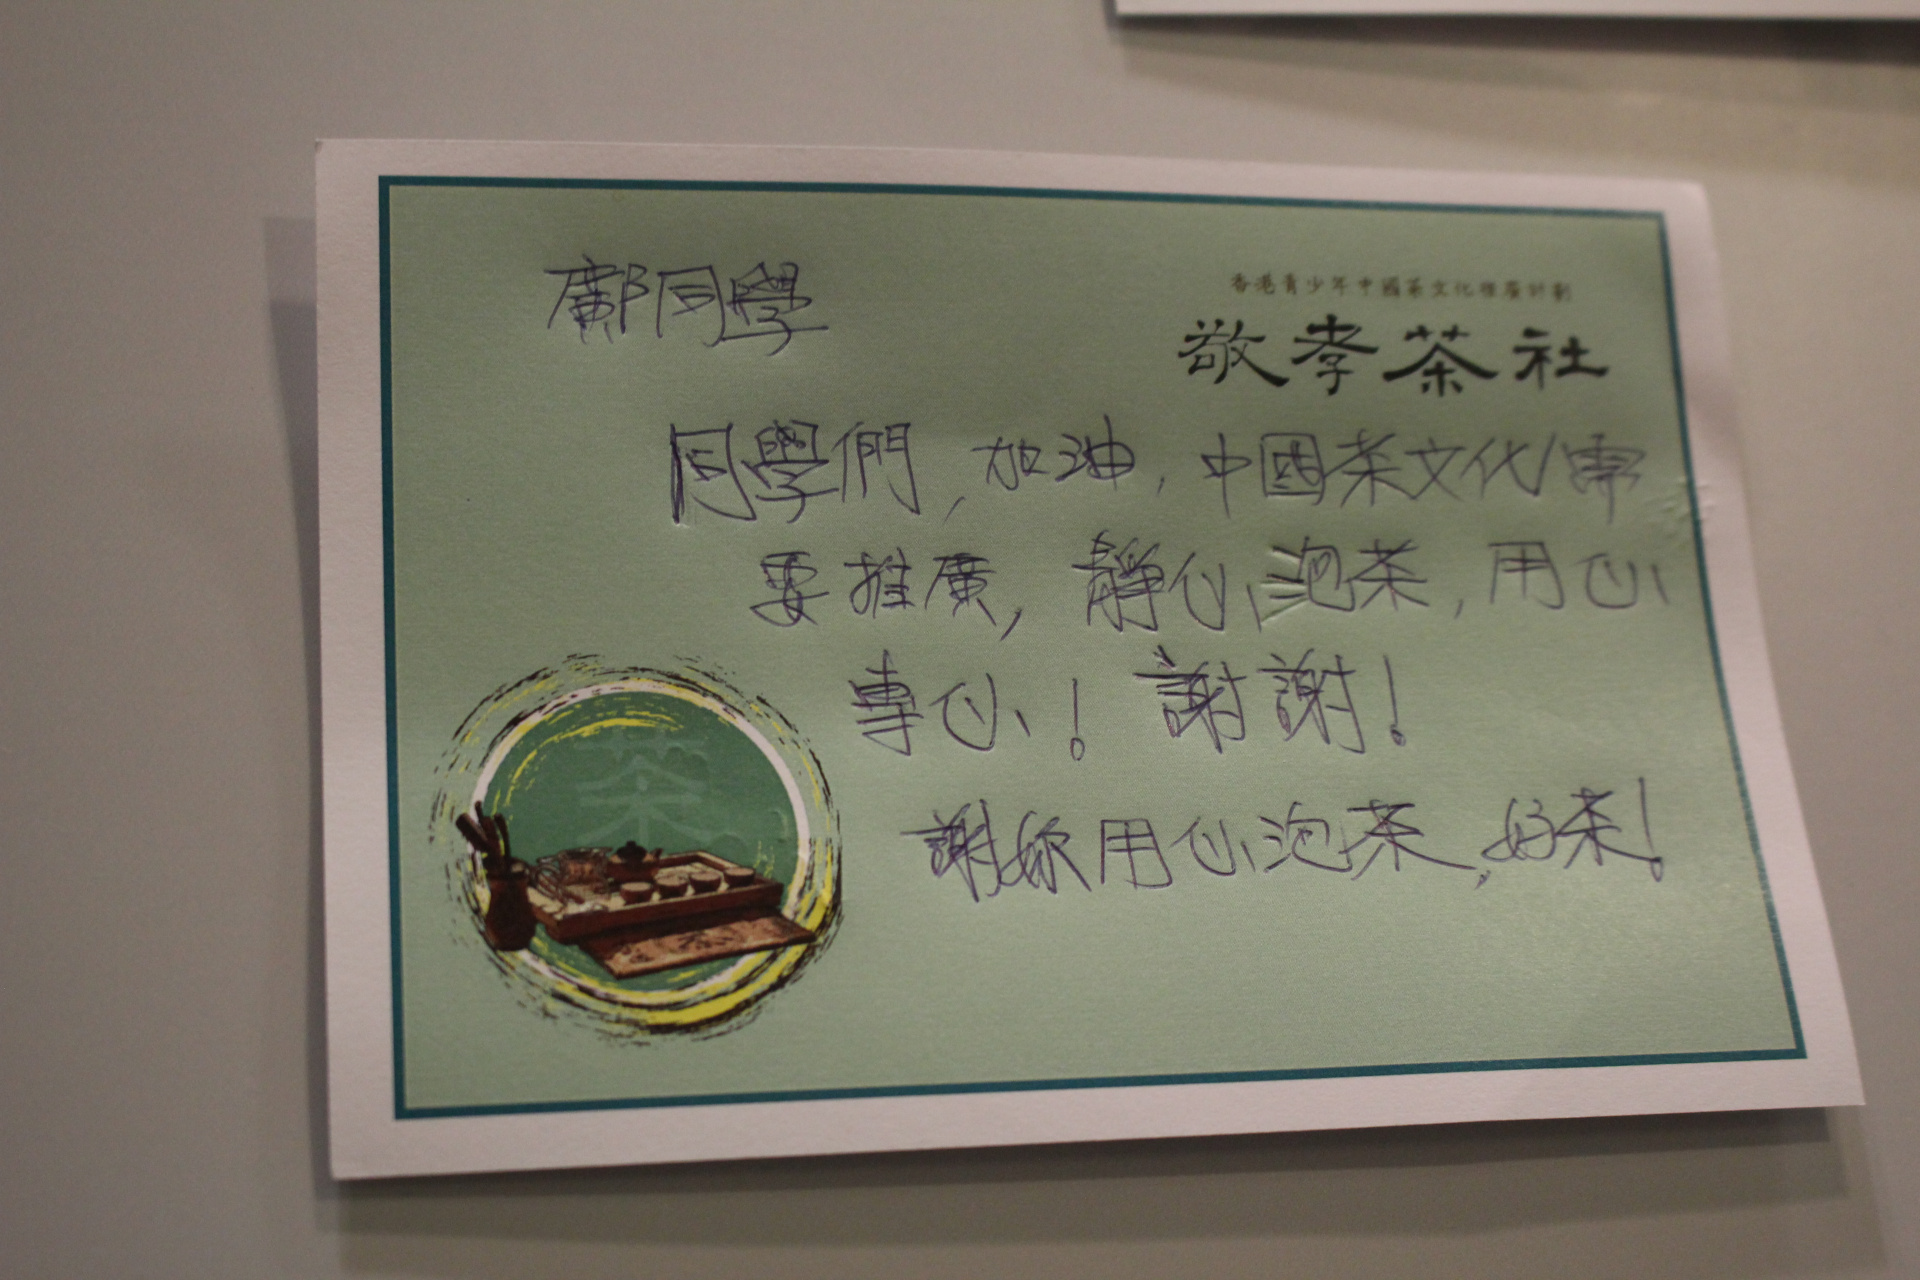 鄺同學
香港青少年中國茶文化推廣計劃
敬孝茶社
同學們,加油,中國茶文化需
要推廣,靜心泡茶,用心
專心!謝謝!
謝你用心泡茶,好茶!
茶